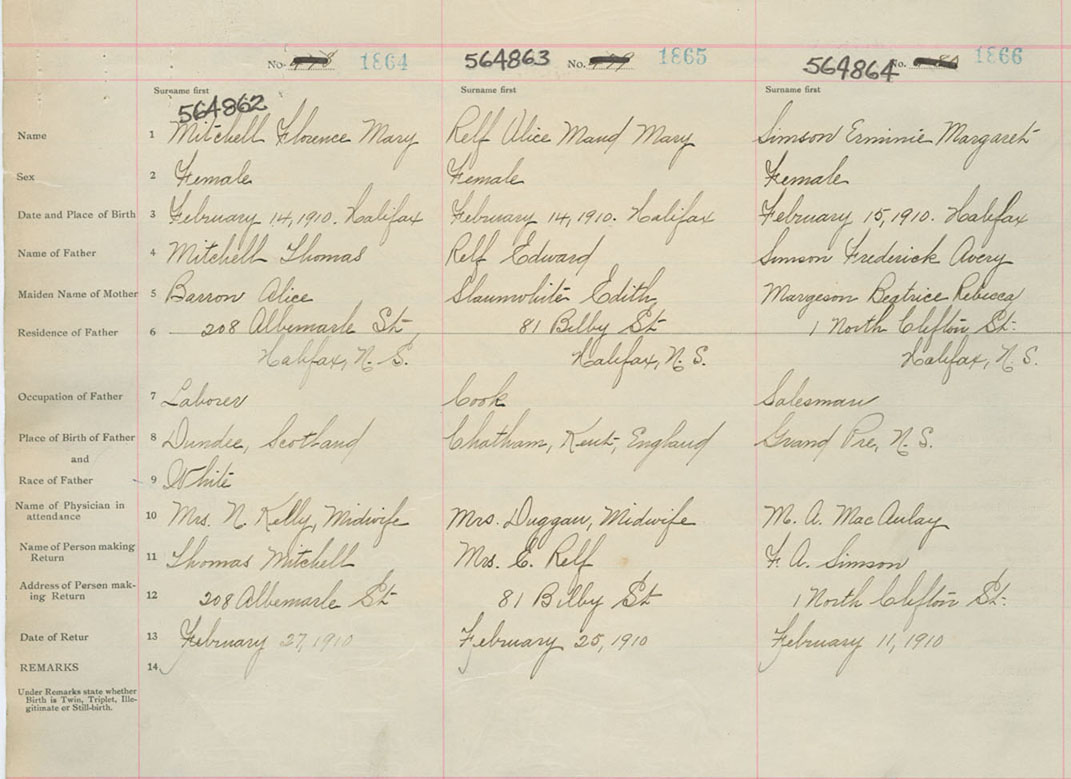 No. 1864 564863 No. 1865 564864 No. 1866
Surname first Surname first Surname first
564862
Name 1 Mitchell Florence Mary Relf Alice Maud Mary Simson Erminie Margaret
Sex 2 Female Female Female
Date and Place of Birth 3 February 14, 1910. Halifax February 14, 1910. Halifax February 15, 1910. Halifax
Name of Father 4 Mitchell Thomas Relf Edward Simson Frederick Avery
Maiden Name of Mother 5 Barron Alice Slaunwhite Edith Margeson Beatrice Rebecca
Residence of Father 6 208 Albemarle St, 81 Bilby St 1 North Clifton St:
Halifax, N. S. Halifax, N. S. Halifax, N. S.
Occupation of Father 7 Laborer Cook Salesman
Place of Birth of Father 8 Dundee, Scotland Chatham, Kent, England Grand Pre, N. S.
and
Race of Father 9 White
Name of Physician in
attendance 10 Mrs. N. Kelly, Midwife Mrs. Duggan, Midwife M. A. MacAulay
Name of Person making
Return 11 Thomas Mitchell Mrs. E. Relf F. A. Simson
Address of Person mak-
ing Return 12 208 Albemarle St 81 Bilby St 1 North Clifton St:
Date of Retur 13 February 27, 1910 February 25, 1910 February 11, 1910
REMARKS 14
Under Remarks state whether
Birth is Twin, Triplet, Ille-
gitimate or Still-birth.